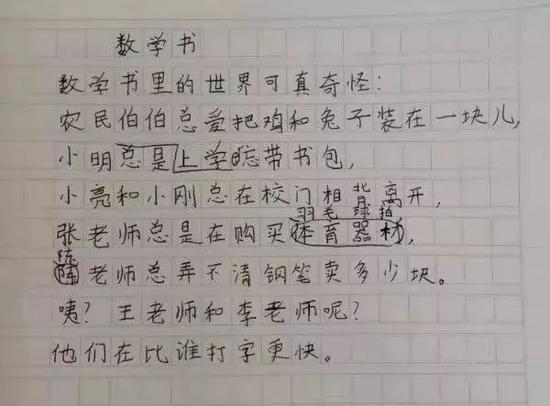 数学书
数学书里的世界可真奇怪：
农民伯伯总爱把鸡和兔子装在一块儿，
小明总是上学忘带书包，
小亮和小刚总在校门相背离开，
羽毛球拍
张老师总是在购买体育器材，
陈
老师总弄不清钢笔卖多少块。
咦？王老师和李老师呢？
他们在比谁打字更快。